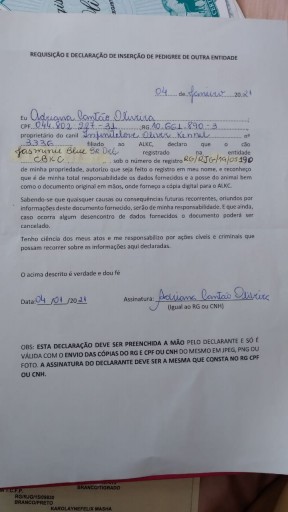 REQUISIÇÃO E DECLARAÇÃO DE INSERÇÃO DE PEDIGREE DE OUTRA ENTIDADE
04 de Janeiro 2021
Eu Adriana Cantão Oliveira
CPF 044.802.227-31 RG 10.661.890-3
proprietário do canil Kennel nº
3336 filiado ao ALKC, declaro que o cão
Jasmine Blue registrado na entidade
CBKC sob o número de registro
de minha propriedade, autorizo que seja feito o registro em meu nome, e reconheço
que é de minha total responsabilidade os dados fornecidos e a posse do animal bem
como o documento original em mãos, onde forneço a cópia digital para o ALKC.
Sabendo se que quaisquer causas ou consequências futuras recorrentes, oriundos por
informações deste documento fornecido, serão de minha responsabilidade. E que ainda,
caso ocorra algum desencontro de dados fornecidos o documento poderá ser
cancelado.
Tenho ciência dos meus atos e me responsabilizo por ações cíveis e criminais que
possam recorrer sobre as informações aqui declaradas.
O acima descrito é verdade e dou fé
Data: 04 /01 /2021 Assinatura: Adriana Cantão Oliveira
(Igual ao RG ou CNH)
OBS: ESTA DECLARAÇÃO DEVE SER PREENCHIDA A MÃO PELO DECLARANTE E SÓ É
VÁLIDA COM O ENVIO DAS CÓPIAS DO RG E CPF OU CNH DO MESMO EM JPEG, PNG OU
FOTO. A ASSINATURA DO DECLARANTE DEVE SER A MESMA QUE CONSTA NO RG CPF
OU CNH.
BRANCO/PRETO